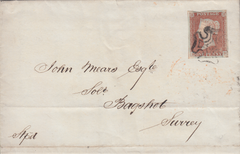 John Mears Esqre
Solr
Bagshot
Surrey